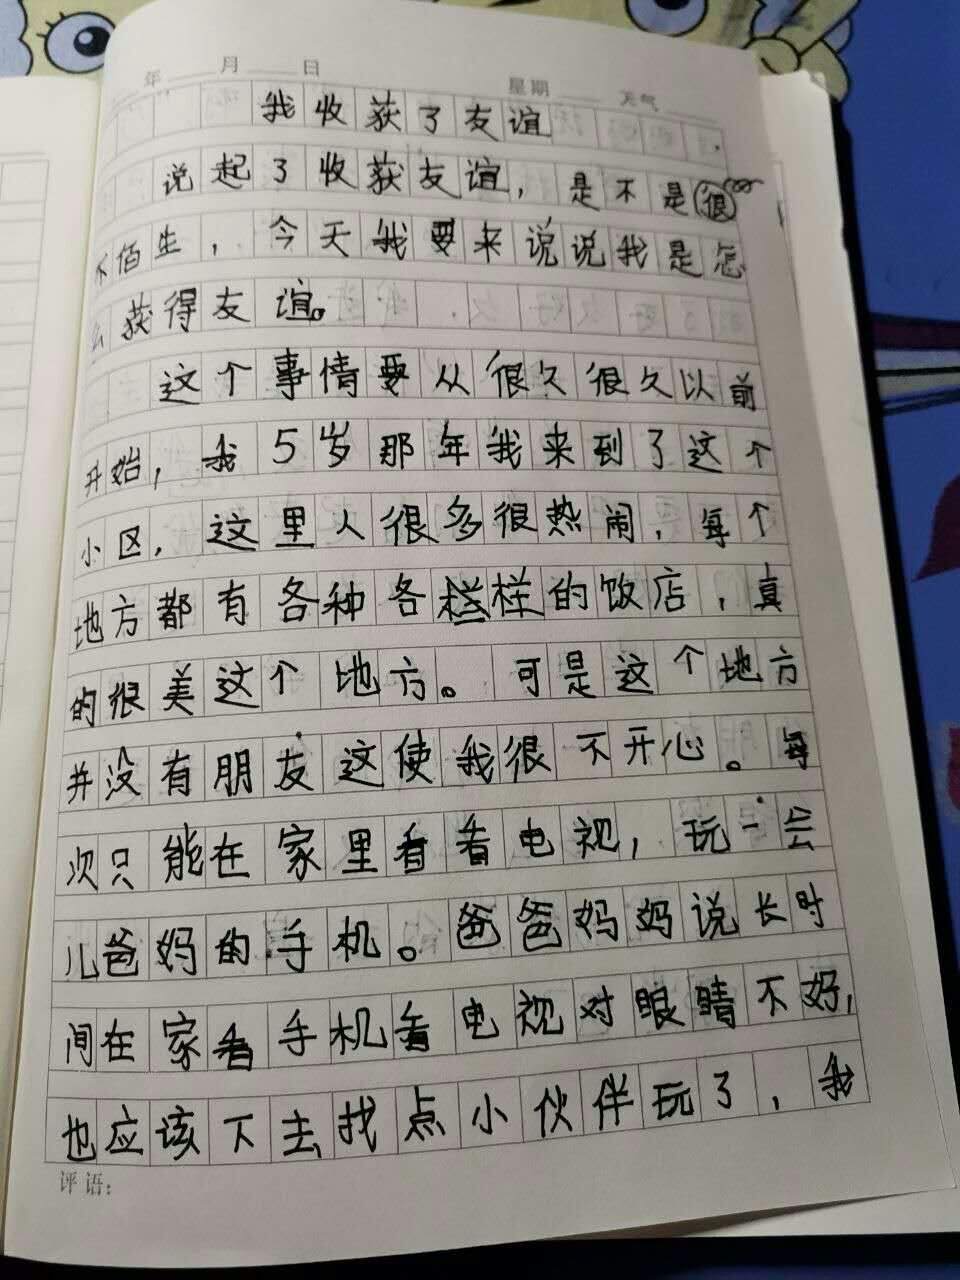 年 月 日
星期 天气
我收获了友谊
说起了收获友谊，是不是很
不佰生，今天我要来说说我是怎
么获得友谊。
这个事情要从很久很久以前
开始，我5岁那年我来到了这个
小区，这里人很多很热闹，每个
地方都有各种各样样的饭店，真
的很美这个地方。可是这个地方
并没有朋友这使我很不开心。每
次只能在家里看看电视，玩一会
儿爸妈的手机。爸爸妈妈说长时
间在家看手机看电视对眼睛不好，
也应该下去找点小伙伴玩了，我
评语：